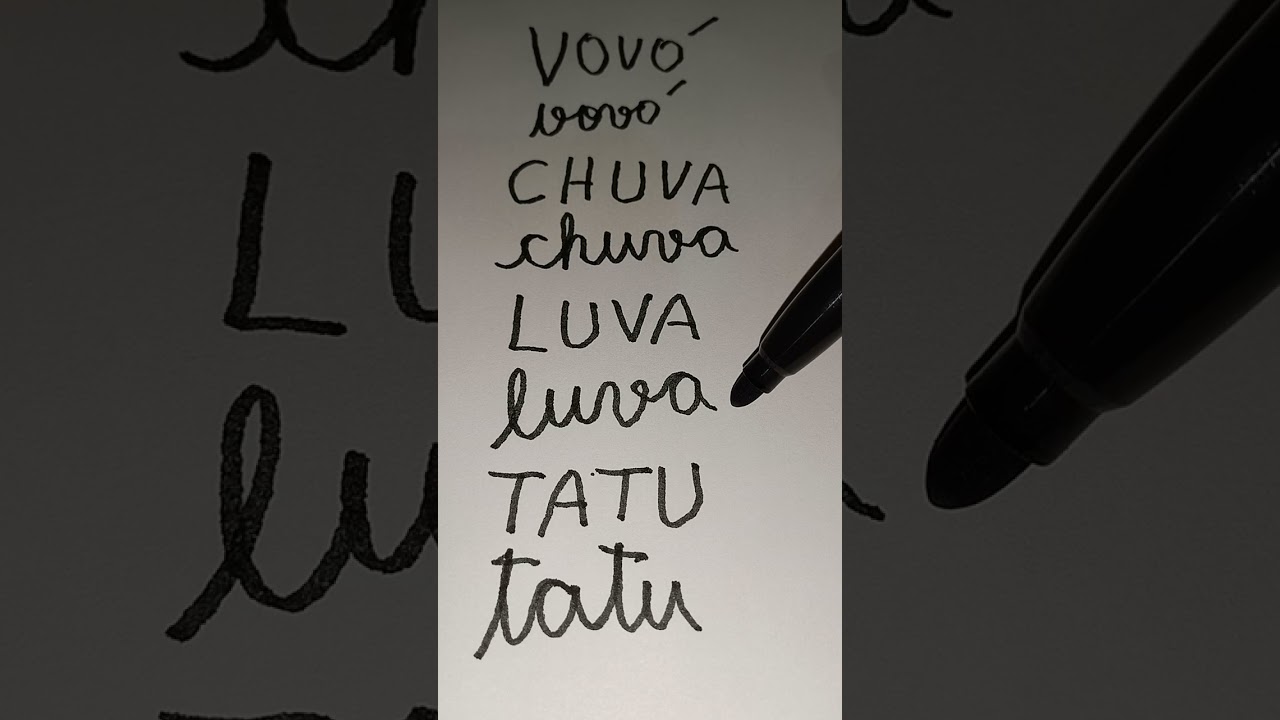 VOVÓ
vovó
CHUVA
chuva
LUVA
luva
TATU
tatu